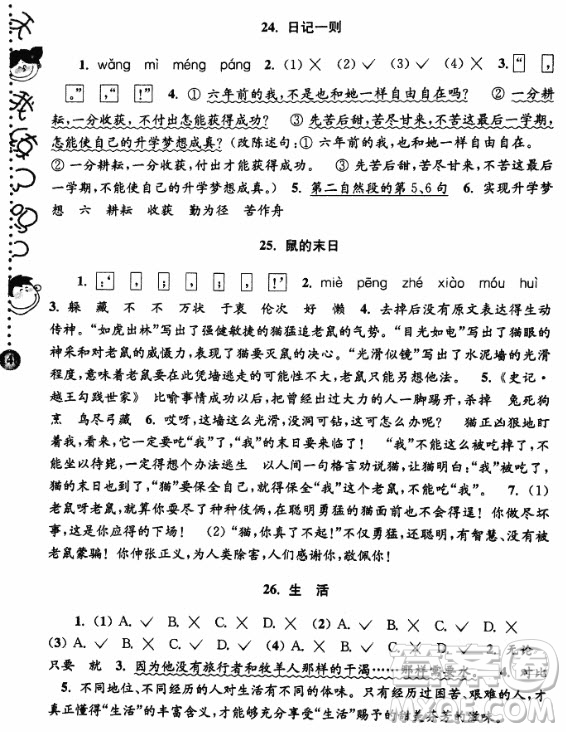 24. 日记一则
1. wǎng mì méng páng 2. (1) × (2) ✓ (3) ✓ (4) × 3. “ ,
。” , ! ” 4. ① 六年前的我,不是也和她一样自由自在吗? ② 一分耕
耘,一分收获,不付出怎能获得成功? ③ 先苦后甜,苦尽甘来,不苦这最后一学期,
怎能使自己的升学梦想成真? (改陈述句:① 六年前的我,也和她一样自由自在。
② 一分耕耘,一分收获,付出才能获得成功。 ③ 先苦后甜,苦尽甘来,不苦这最后
一学期,不能使自己的升学梦想成真。) 5. 第二自然段的第5、6句 6. 实现升学梦
想 六 耕耘 收获 勤为径 苦作舟
25. 鼠的末日
1. : “ , ; , ; , ! ” 2. miè pēng zhé xiào móu huì
3. 躲 藏 不 不 万状 于衷 伦次 好 懒 4. 去掉后没有原文表达得生动
传神。“如虎出林”写出了强健敏捷的猫猛追老鼠的气势。“目光如电”写出了猫眼的
神采和对老鼠的威慑力,表现了猫要灭鼠的决心。“光滑似镜”写出了水泥墙的光滑
程度,意在表现老鼠要在此凭墙逃走的可能性不大,只能另想他法。 5. 《史记·
越王勾践世家》 比喻事情成功以后,把曾经出过大力的人一脚踢开,杀掉 兔死狗
烹 鸟尽弓藏 6. 哎呀,这墙这么光滑,没洞可钻,这可怎么办呢? 猫正凶狠地盯
着我,看来,我要中它的“奖”了,“我”的末日要来临了! “我”不能这么被吃掉了,不
能坐以待毙,一定得想个办法逃生 以一个寓言故事劝说猫,让猫明白:“我”死了,
猫的末日也到了,“猫”为了保全自己,就不能吃“我”。 7. (1)
老鼠呀老鼠,就算你想尽了种种伎俩,在聪明勇猛的猫面前也不会得逞。你做尽坏
事,这是你应得的下场! (2)“猫,你真了不起!”不仅勇猛,还聪明,有智慧、没有被
老鼠蒙骗!你伸张正义,为人类除害,人们感谢你、敬佩你!
26. 生 活
1. (1) A. ✓ B. × C. × D. × (2) A. × B. ✓ C. ✓ D. ×
(3) A. ✓ B. × C. ✓ D. ✓ (4) A. × B. × C. D. ✓ 2. 无论
只要 就 3. 因为他没有旅行者和牧羊人那样的干渴……那样需要水。 4. 对比
5. 不同地位、不同经历的人对生活有不同的体味。只有经过困苦、艰难的人,才
真正懂得“生活”的丰富含义,才能够充分享受“生活”赐予的甜美芬芳的滋味。
4